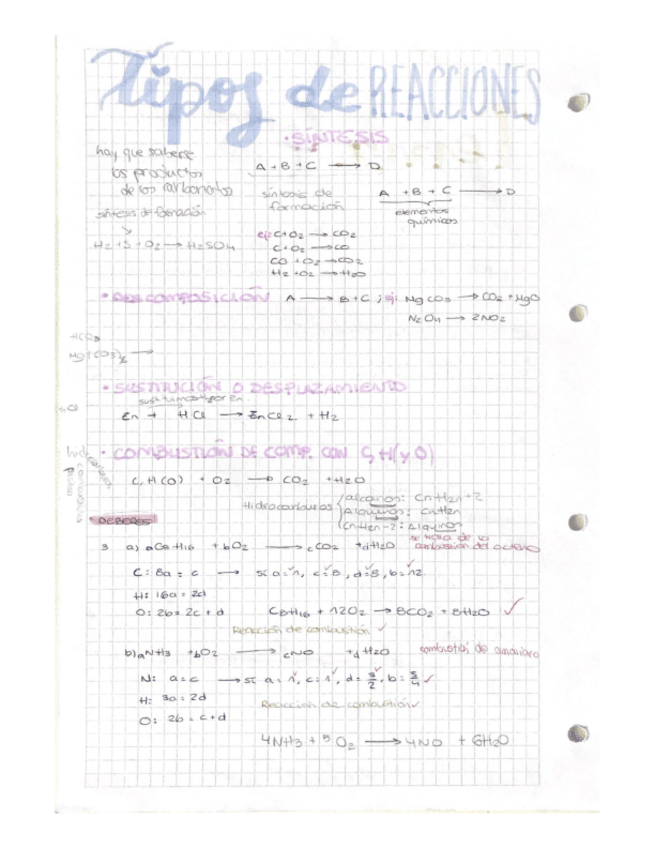 Tipos de REACCIONES
• SÍNTESIS
hay que saberse
los productos
de los carbonatos
A + B + C → D
síntesis de formación
H2 + S + O2 → H2SO4
síntesis de
formación
A + B + C → D
elementos
químicos
ej: C+O2 → CO2
C+O2 → CO
CO + O2 → CO2
H2 + O2 → H2O
• DESCOMPOSICIÓN A → B + C ; ej: MgCO3 → CO2 + MgO
N2O4 → 2NO2
Mg(CO3)2 →
• SUSTITUCIÓN O DESPLAZAMIENTO
sustituimos H por Zn
Zn + HCl → ZnCl2 + H2
• COMBUSTIÓN DE COMP. CON C, H (y O)
C, H (O) + O2 → CO2 + H2O
Hidrocarburos
alcanos: CnH2n+2
Alquenos: CnH2n
CnH2n-2: Alquinos
DEBERES
3 a) aC8H16 + bO2 → cCO2 + dH2O
se trata de la
combustión del octeno
C: 8a = c → si a=1, c=8, d=8, b=12
H: 16a = 2d
O: 2b = 2c + d
C8H16 + 12O2 → 8CO2 + 8H2O ✓
Reacción de combustión ✓
b) aNH3 + bO2 → cNO + dH2O
combustión de amoniaco
N: a=c → si a=1, c=1, d=3/2, b=5/4 ✓
H: 3a = 2d
Reacción de combustión ✓
O: 2b = c+d
4NH3 + 5O2 → 4NO + 6H2O